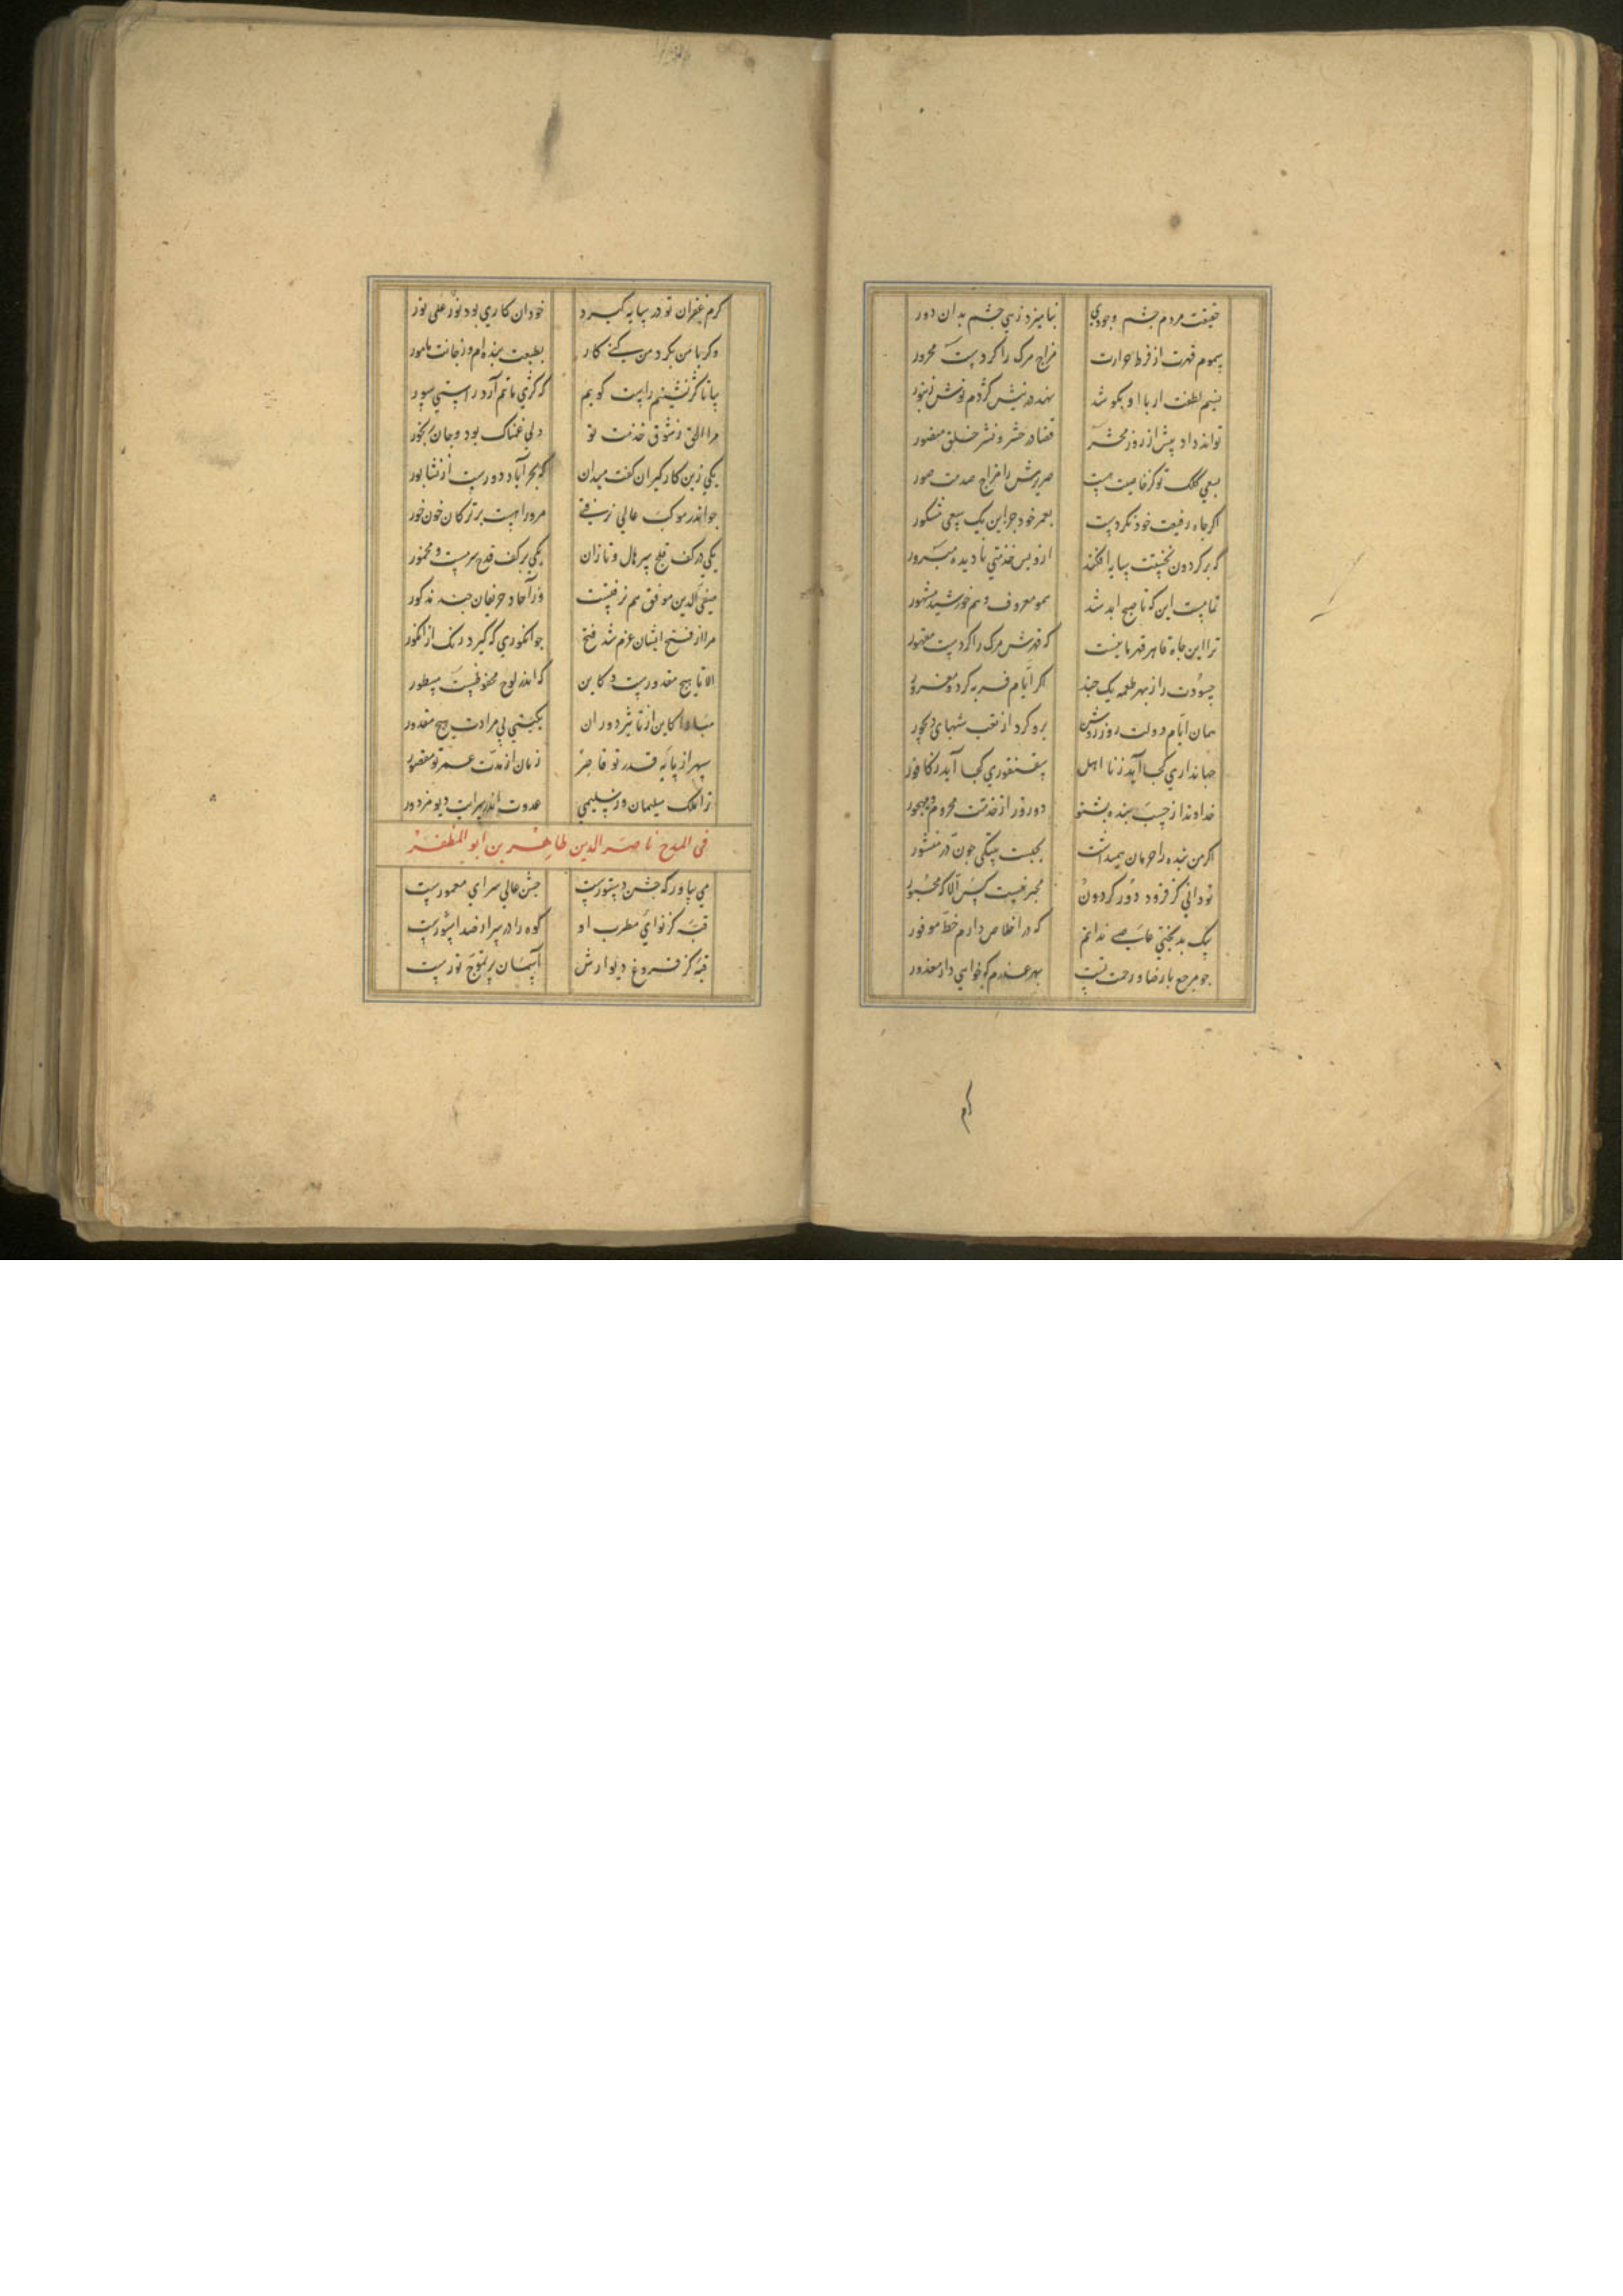 حقیقت مردم چشم وجودی نیامیزد زهی چشم بدان دور
سموم قهرت از فرط حرارت مزاج مرگ را کردست محرور
نسیم لطفت ار با او بکوشد نهد در نیش کژدم نوش زنبور
تواند داد پیش از روز محشر قضا در حشر و نشر خلق منشور
بسعی کلک تو کز خاصیت هست صریرش را مزاج صدمت صور
اگر جاه رفیعت خود نکردست بعمر خود جز این یک سعی مشکور
که بر گردون نجنبت سایه افکند ازو بس خدمتی نادیده مبرور
تمامست این که تا صبح ابد شد هم معروف و هم خورشید مشهور
ترا این جاه قاهر قهرمانیست که قهرش مرگ را کردست مقهور
حسودت را ز بهر طعمه یک چند اگر ایام فربه کرد و مغرور
همان ایام دولت روز روشن برو کرد از تعب شبهای دیجور
جهانداری کجا آید ز نا اهل سقنقوری کجا آید ز کافور
خداوندا ز حسب بنده بشنو دو روز از خدمتت محروم و مهجور
اگر من بنده را حرمان همیداشت بجست بیتکی چون در منثور
تو دانی کز فرود دور گردون مخیر نیست کس الا که مجبور
بیک بدبختی عاصی ندانم که در اخلاص دارم حظ موفور
چو مرجع با رضا و رحمت تست بهر عذرم که خواهی دار معذور
کرم غفران تو در سایه گیرد خود آن کاری بود نور علی نور
وگر با من بکرد من کنی کار بطبعت بنده‌ام وز جانت مامور
بیا تا کژ نشینم راست گویم که کژی ماتم آرد راستی سور
مرا الحق ز شوق خدمت تو دلی غمناک بود و جان رنجور
یکی زین کارگیران گفت میدان که بحرآباد دورست از نشابور
چو اندر موکب عالی نرفتی مرو راهیست بر ترکان خون خور
یکی در کف تیغ سر هال و تازان یکی بر کف قدح سرمست و مخمور
صفی الدین موفق هم نرفتست وز آحاد حریفان چند مذکور
مرا از فسخ ایشان عزم شد فسخ چو انگوری که گیرد رنگ از انگور
الا تا هیچ مقدورست و کاین که اندر لوح محفوظست مسطور
مبادا کاین از تاثیر دوران بگیتی بی مرادت هیچ مقدور
سپهر از پایه قدر تو قاصر زمان از مدت عمر تو مقصور
ترا ملک سلیمان وز سلیمی عدوت اندر سرای دیو مزدور
فی المدح ناصر الدین طاهر بن ابو المظفر
می بیاور که جشن دستورست جشن عالی سرای معمورست
قبه کز نوای مطرب او کوه را در سر از صدا شورست
قبه کز فروغ دیوارش آسمان پر تموج نورست